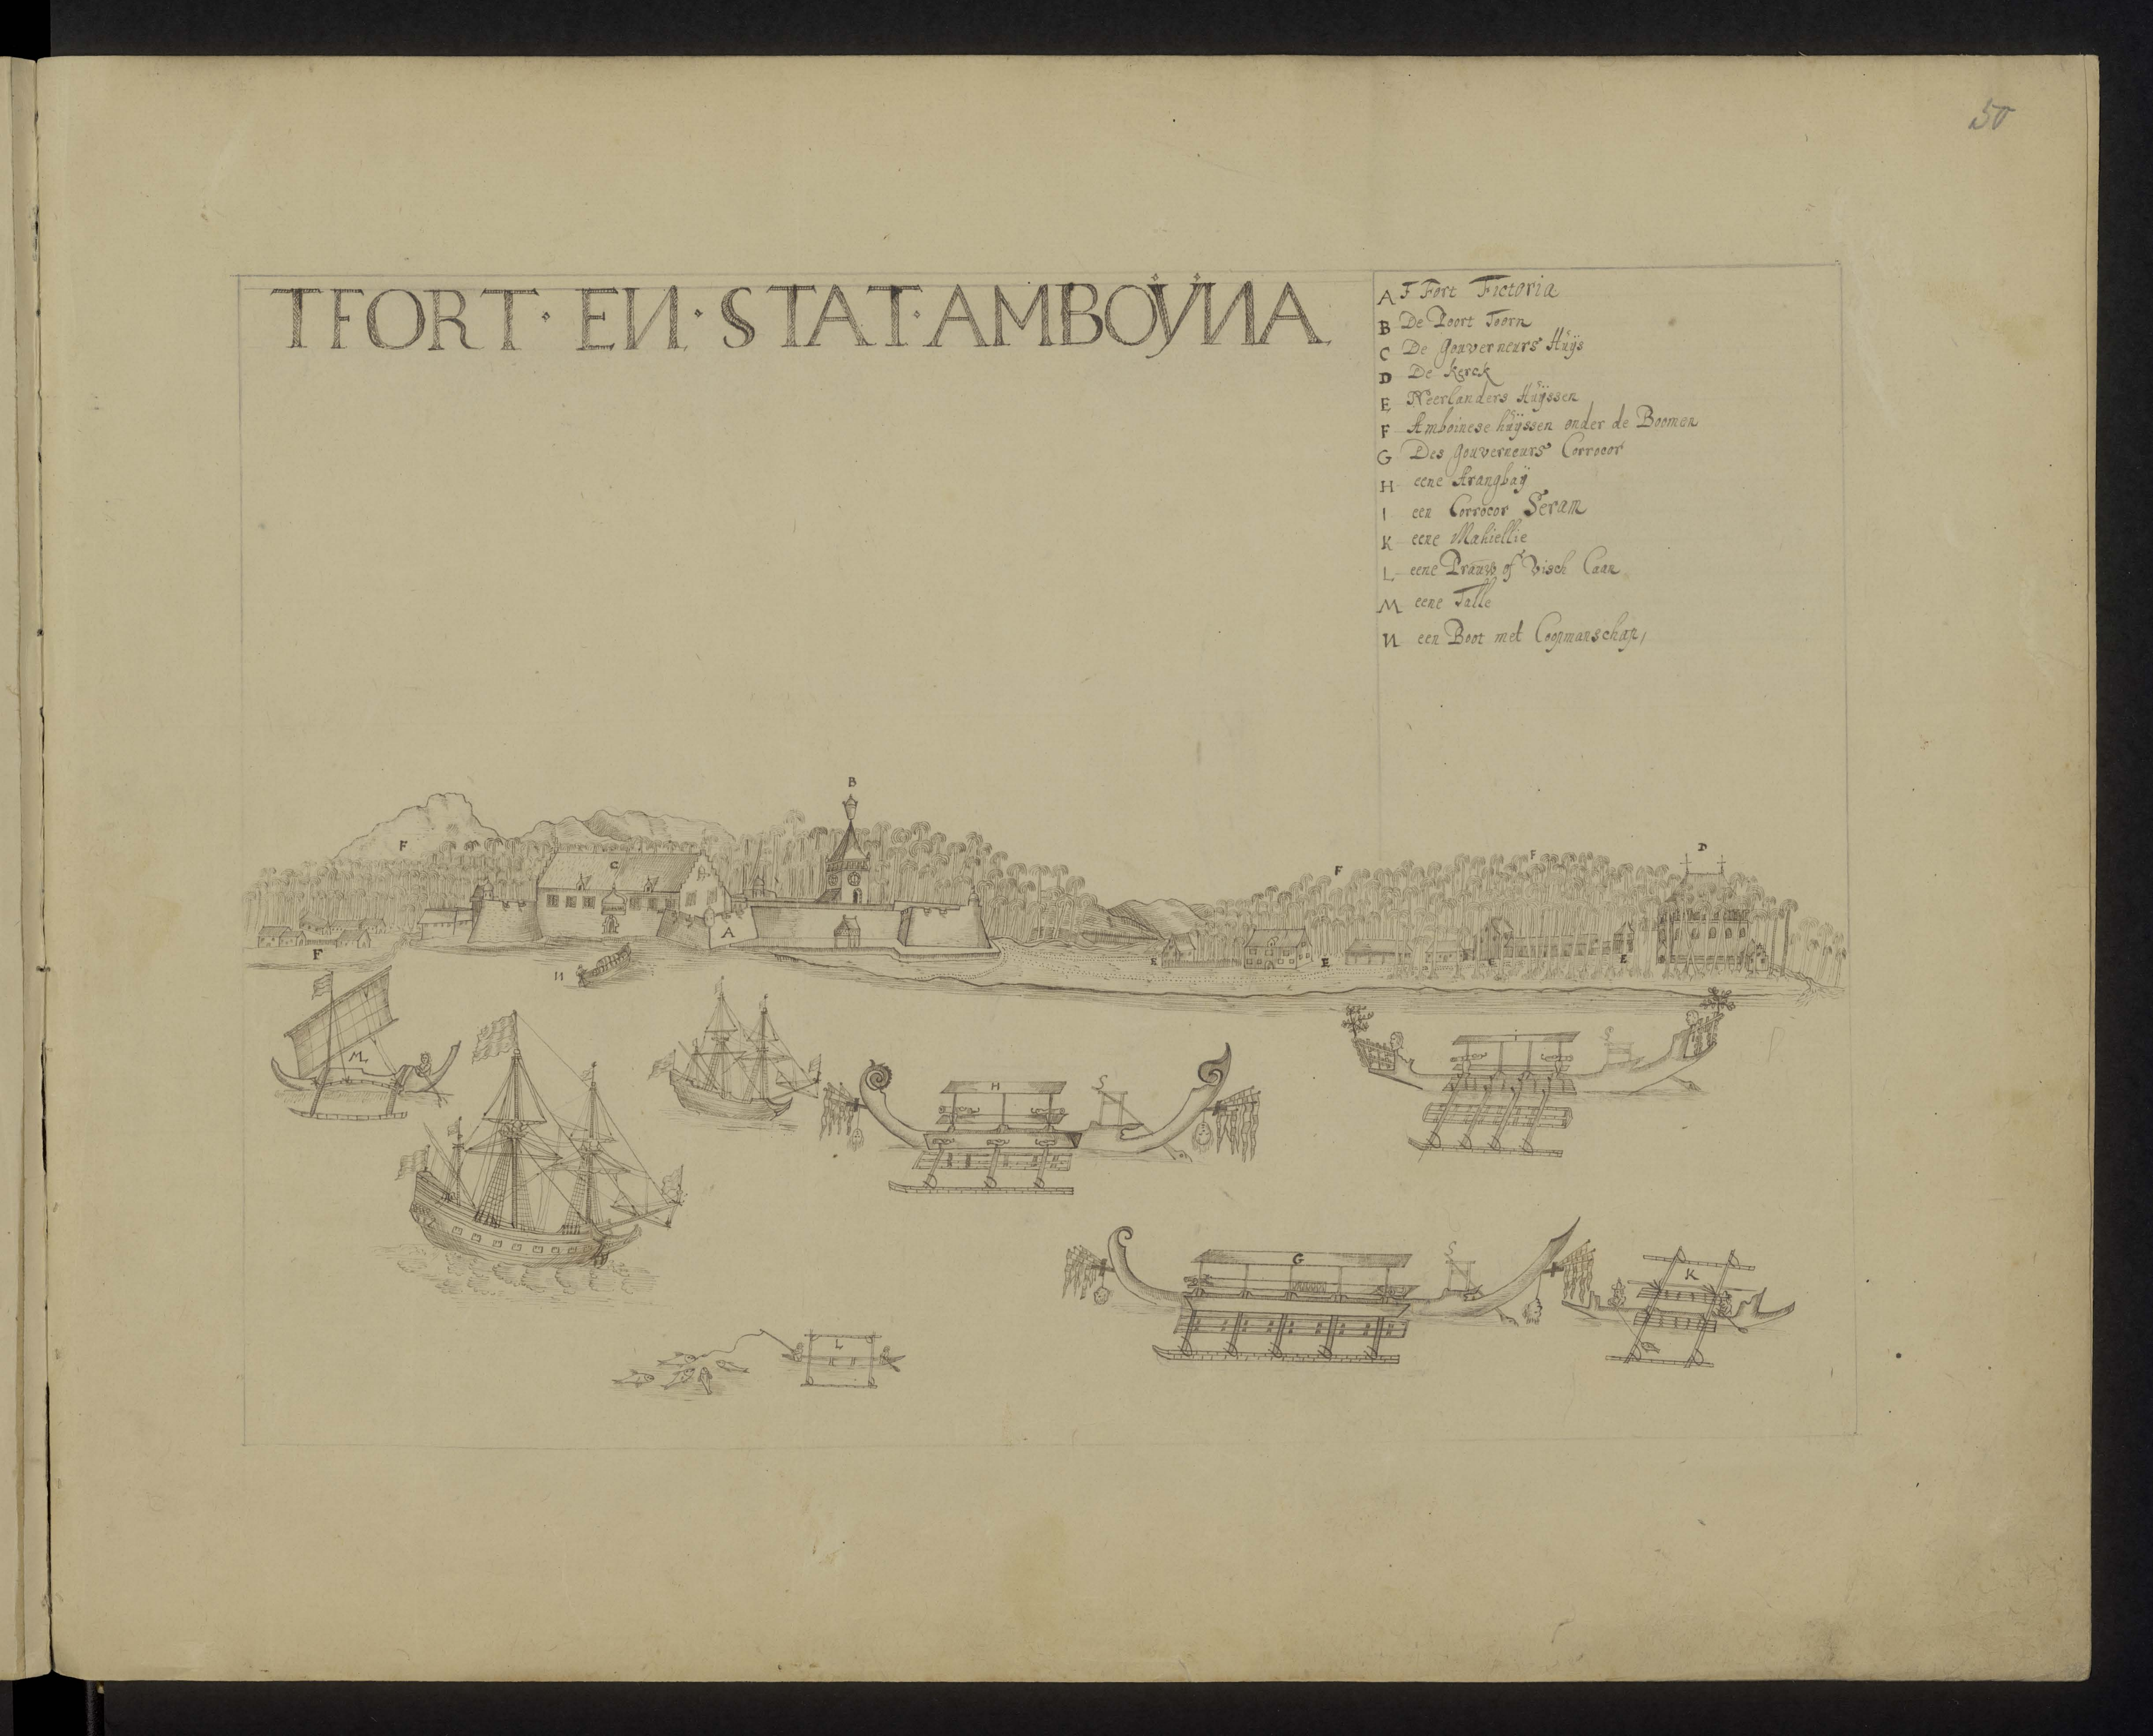 50
TFORT · EN · STAT · AMBOŸNA
A F Fort Fictoria
B De Poort Toorn
C De Gouverneurs Huÿs
D De Kerck
E Neerlanders Huÿssen
F Amboinese huÿssen onder de Boomen
G Des Gouverneurs Corrocor
H eene Arangbaÿ
I een Corrocor Seram
K eene Mahiellie
L eene Prauw of Visch Caan
M eene Talle
N een Boot met Coopmanschap,
B
F C F F D
A
F E E E E
N
M
I S
H S
G S
K
L